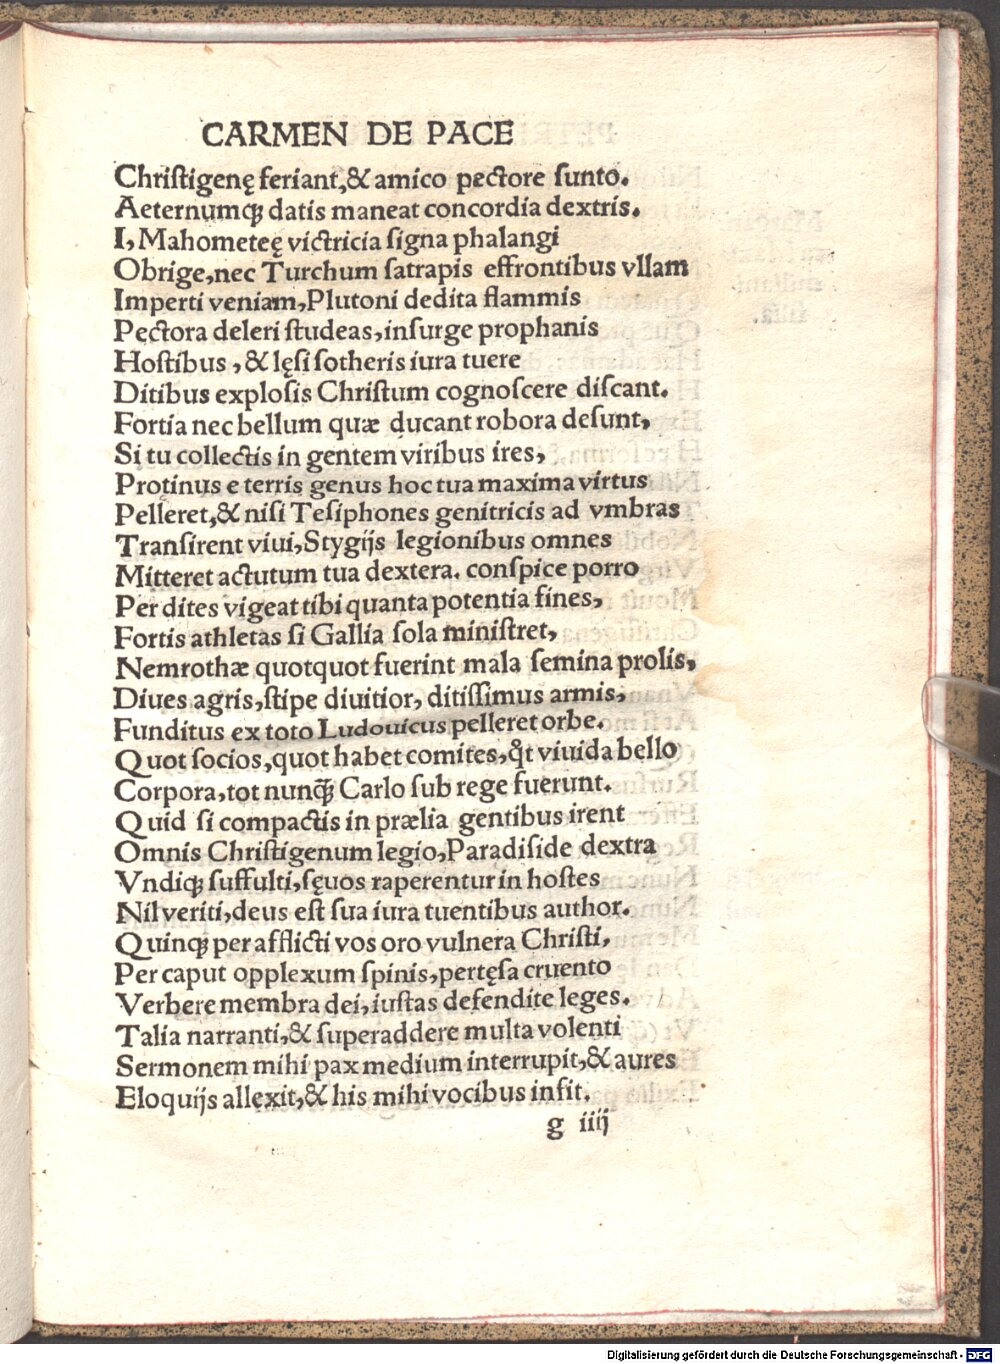 CARMEN DE PACE
Chriſtigenę feriant,& amico pectore ſunto.
Aeternumq; datis maneat concordia dextris.
I, Mahometeę victricia ſigna phalangi
Obrige,nec Turchum ſatrapis effrontibus vllam
Imperti veniam,Plutoni dedita flammis
Pectora deleri ſtudeas,inſurge prophanis
Hoſtibus ,& lęſi ſotheris iura tuere
Ditibus exploſis Chriſtum cognoſcere diſcant.
Fortia nec bellum quæ ducant robora deſunt,
Si tu collectis in gentem viribus ires,
Protinus e terris genus hoc tua maxima virtus
Pelleret,& niſi Teſiphones genitricis ad vmbras
Tranſirent viui,Stygijs legionibus omnes
Mitteret actutum tua dextera. conſpice porro
Per dites vigeat tibi quanta potentia fines,
Fortis athletas ſi Gallia ſola miniſtret,
Nemrothæ quotquot fuerint mala ſemina prolis,
Diues agris,ſtipe diuitior, ditiſſimus armis,
Funditus ex toto Ludouicus pelleret orbe.
Quot ſocios,quot habet comites,q̃t viuida bello
Corpora,tot nunq̃ Carlo ſub rege fuerunt.
Quid ſi compactis in prælia gentibus irent
Omnis Chriſtigenum legio,Paradiſide dextra
Vndiq; ſuffulti,ſęuos raperentur in hoſtes
Nil veriti,deus eſt ſua iura tuentibus author.
Quinq; per afflicti vos oro vulnera Chriſti,
Per caput opplexum ſpinis,pertęſa cruento
Verbere membra dei,iuſtas defendite leges.
Talia narranti,& ſuperaddere multa volenti
Sermonem mihi pax medium interrupit,& aures
Eloquijs allexit,& his mihi vocibus infit.
g iiij
Digitalisierung gefördert durch die Deutsche Forschungsgemeinschaft - DFG